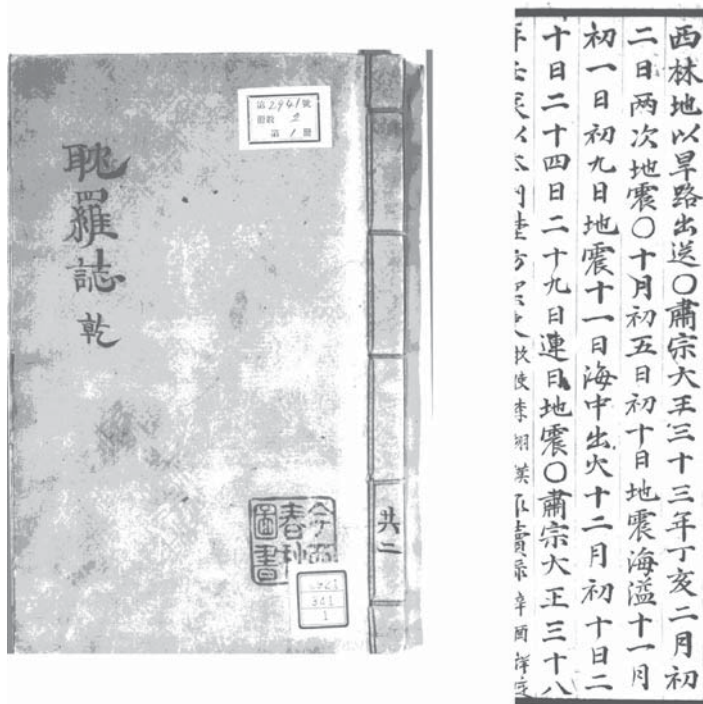 第2941號
冊數 2
第1冊
耽羅誌 乾
今西
春秋
圖書
共二
1
西林地以旱路出送〇肅宗大王三十三年丁亥二月初
二日两次地震〇十月初五日初十日地震海溢十一月
初一日初九日地震十一日海中出火十二月初十日二
十日二十四日二十九日連日地震〇肅宗大王三十八